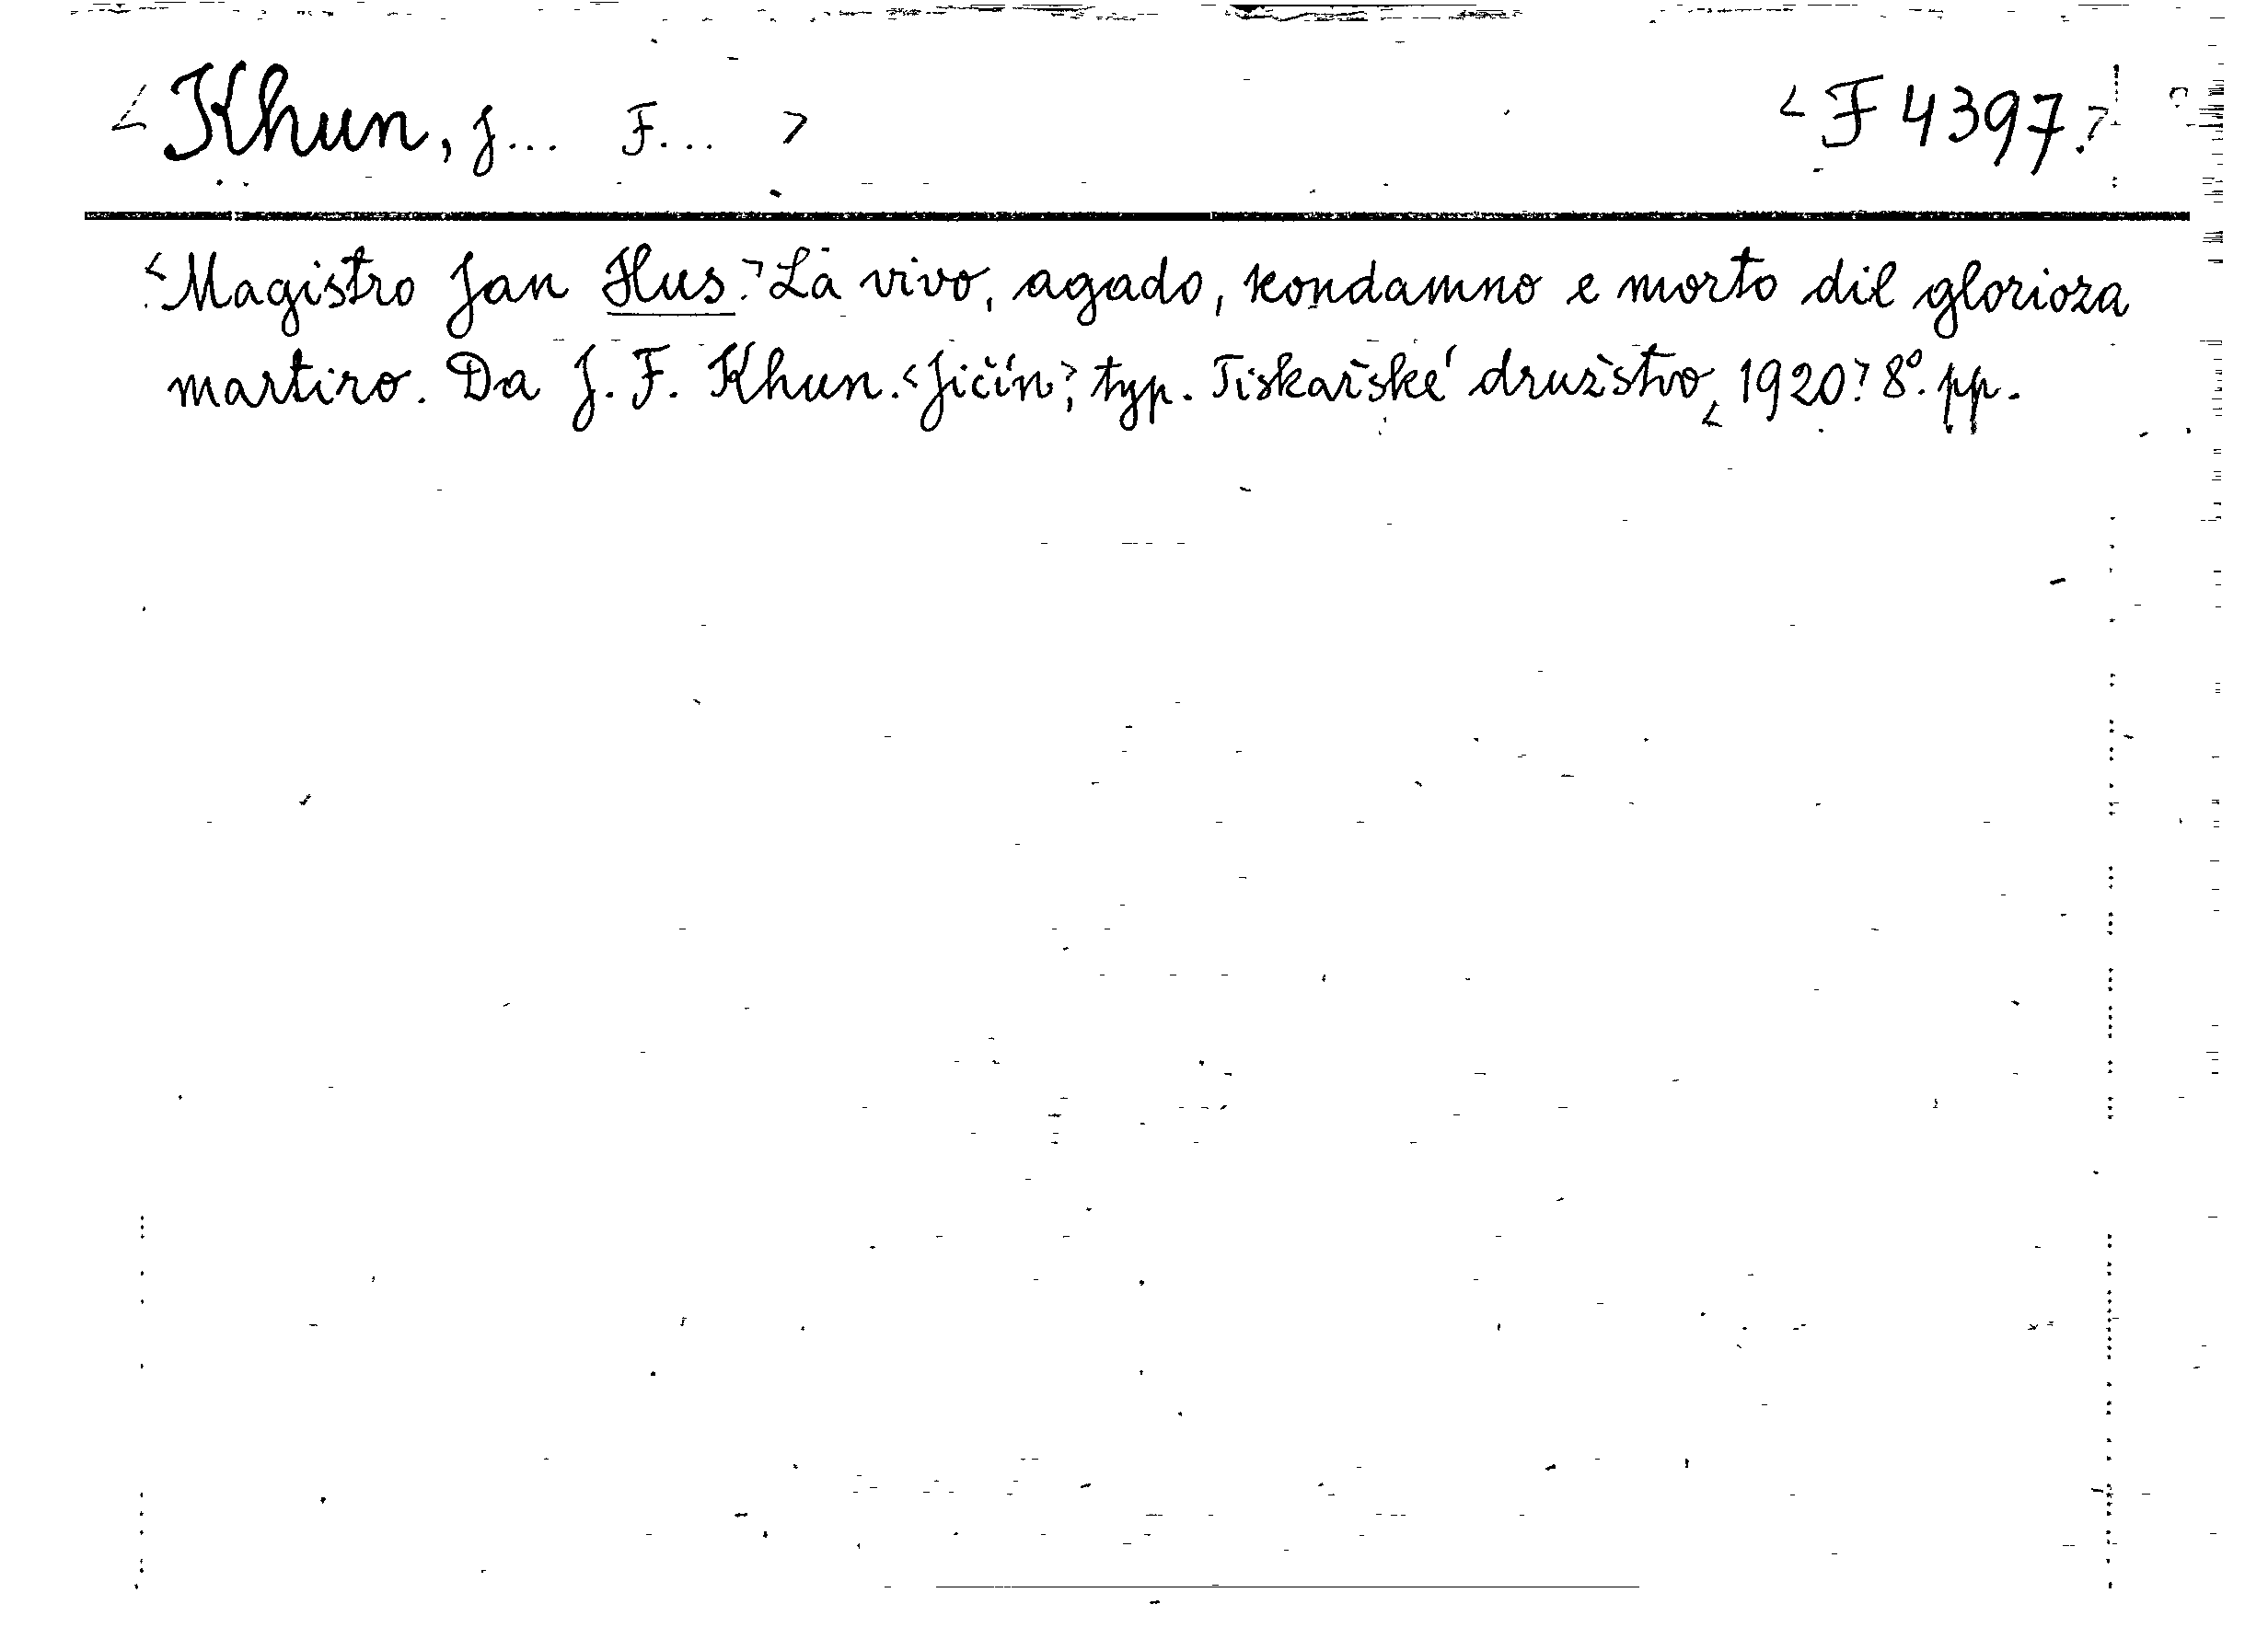 <Khun, J... F... > <F 4397.>
<Magistro Jan Hus.> La vivo, agado, kondamno e morto dil glorioza
martiro. Da J. F. Khun. <Jičín>, typ. Tiskařské družstvo, <1920> 8°. pp.